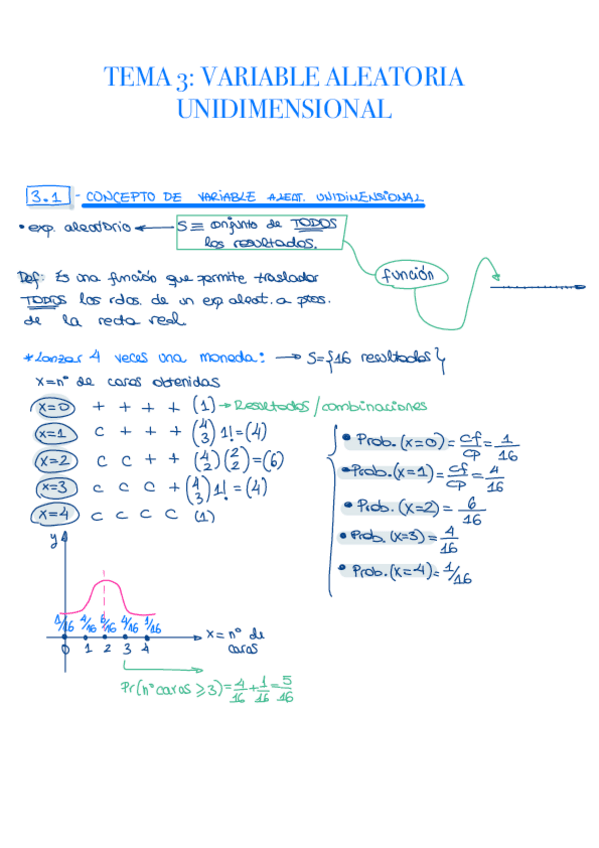 TEMA 3: VARIABLE ALEATORIA
UNIDIMENSIONAL
3.1 - CONCEPTO DE VARIABLE ALEAT. UNIDIMENSIONAL
• exp. aleatorio ← S ≡ conjunto de TODOS
los resultados.
función
Def: Es una función que permite trasladar
TODOS los rdos. de un exp aleat. a ptos.
de la recta real.
* Lanzar 4 veces una moneda: → S={16 resultados}
X=nº de caras obtenidas
X=0 + + + + (1) → Resultados/combinaciones
X=1 C + + + (4 3) 1! = (4)
X=2 C C + + (4 2)(2 2)=(6)
X=3 C C C + (4 3) 1! = (4)
X=4 C C C C (1)
• Prob. (X=0) = cf/cp = 1/16
• Prob. (X=1) = cf/cp = 4/16
• Prob. (X=2) = 6/16
• Prob. (X=3) = 4/16
• Prob. (X=4) = 1/16
y
1/16 4/16 6/16 4/16 1/16
0 1 2 3 4
X = nº de
caras
Pr(nº caras ⩾ 3) = 4/16 + 1/16 = 5/16